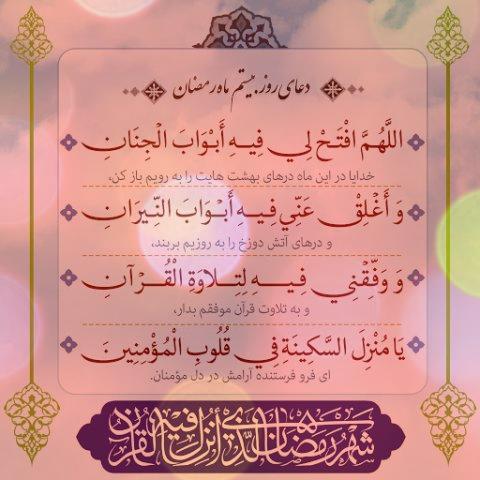 دعای روز بیستم ماه رمضان
اللَّهُمَّ افْتَحْ لِي فِيهِ أَبْوَابَ الْجِنَانِ
خدایا در این ماه درهای بهشت هایت را به رویم باز کن،
وَ أَغْلِقْ عَنِّي فِيهِ أَبْوَابَ النِّيرَانِ
و درهای آتش دوزخ را به روزیم بربند،
وَ وَفِّقْنِي فِيهِ لِتِلَاوَةِ الْقُرْآنِ
و به تلاوت قرآن موفقم بدار،
يَا مُنْزِلَ السَّكِينَةِ فِي قُلُوبِ الْمُؤْمِنِينَ
ای فرو فرستنده آرامش در دل مؤمنان.
شهر رمضان الذي أنزل فيه القرآن